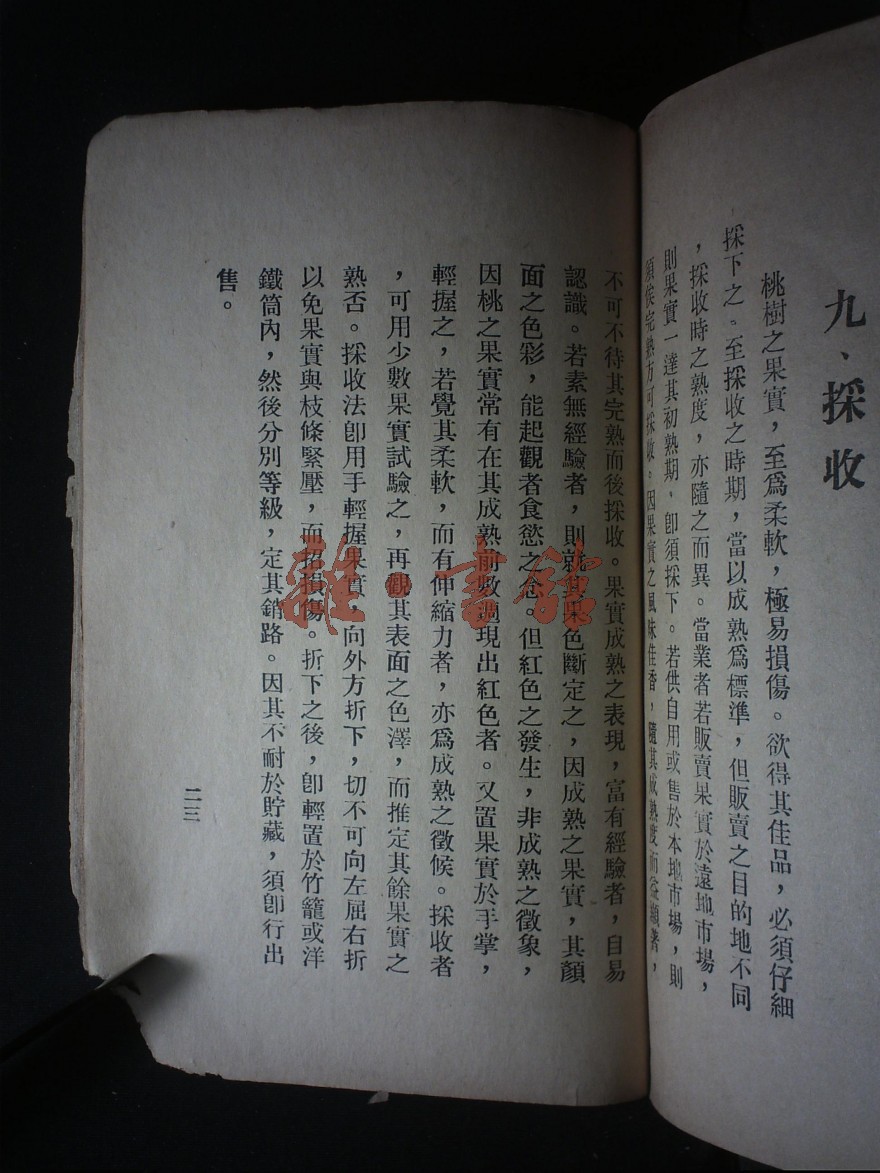 九、採收
桃樹之果實，至爲柔軟，極易損傷。欲得其佳品，必須仔細
採下之。至採收之時期，當以成熟爲標準，但販賣之目的地不同
，採收時之熟度，亦隨之而異。當業者若販賣果實於遠地市場，
則果實一達其初熟期，卽須採下。若供自用或售於本地市場，則
須俟完熟方可採收。因果實之風味佳香，隨其成熟度而益顯著，
不可不待其完熟而後採收。果實成熟之表現，富有經驗者，自易
認識。若素無經驗者，則就其果色斷定之，因成熟之果實，其顏
面之色彩，能起觀者食慾之念。但紅色之發生，非成熟之徵象，
因桃之果實常有在其成熟前數週現出紅色者。又置果實於手掌，
輕握之，若覺其柔軟，而有伸縮力者，亦爲成熟之徵候。採收者
，可用少數果實試驗之，再觀其表面之色澤，而推定其餘果實之
熟否。採收法卽用手輕握果實，向外方折下，切不可向左屈右折
以免果實與枝條緊壓，而招損傷。折下之後，卽輕置於竹籠或洋
鐵筒內，然後分別等級，定其銷路。因其不耐於貯藏，須卽行出
售。
二三
雜·書館